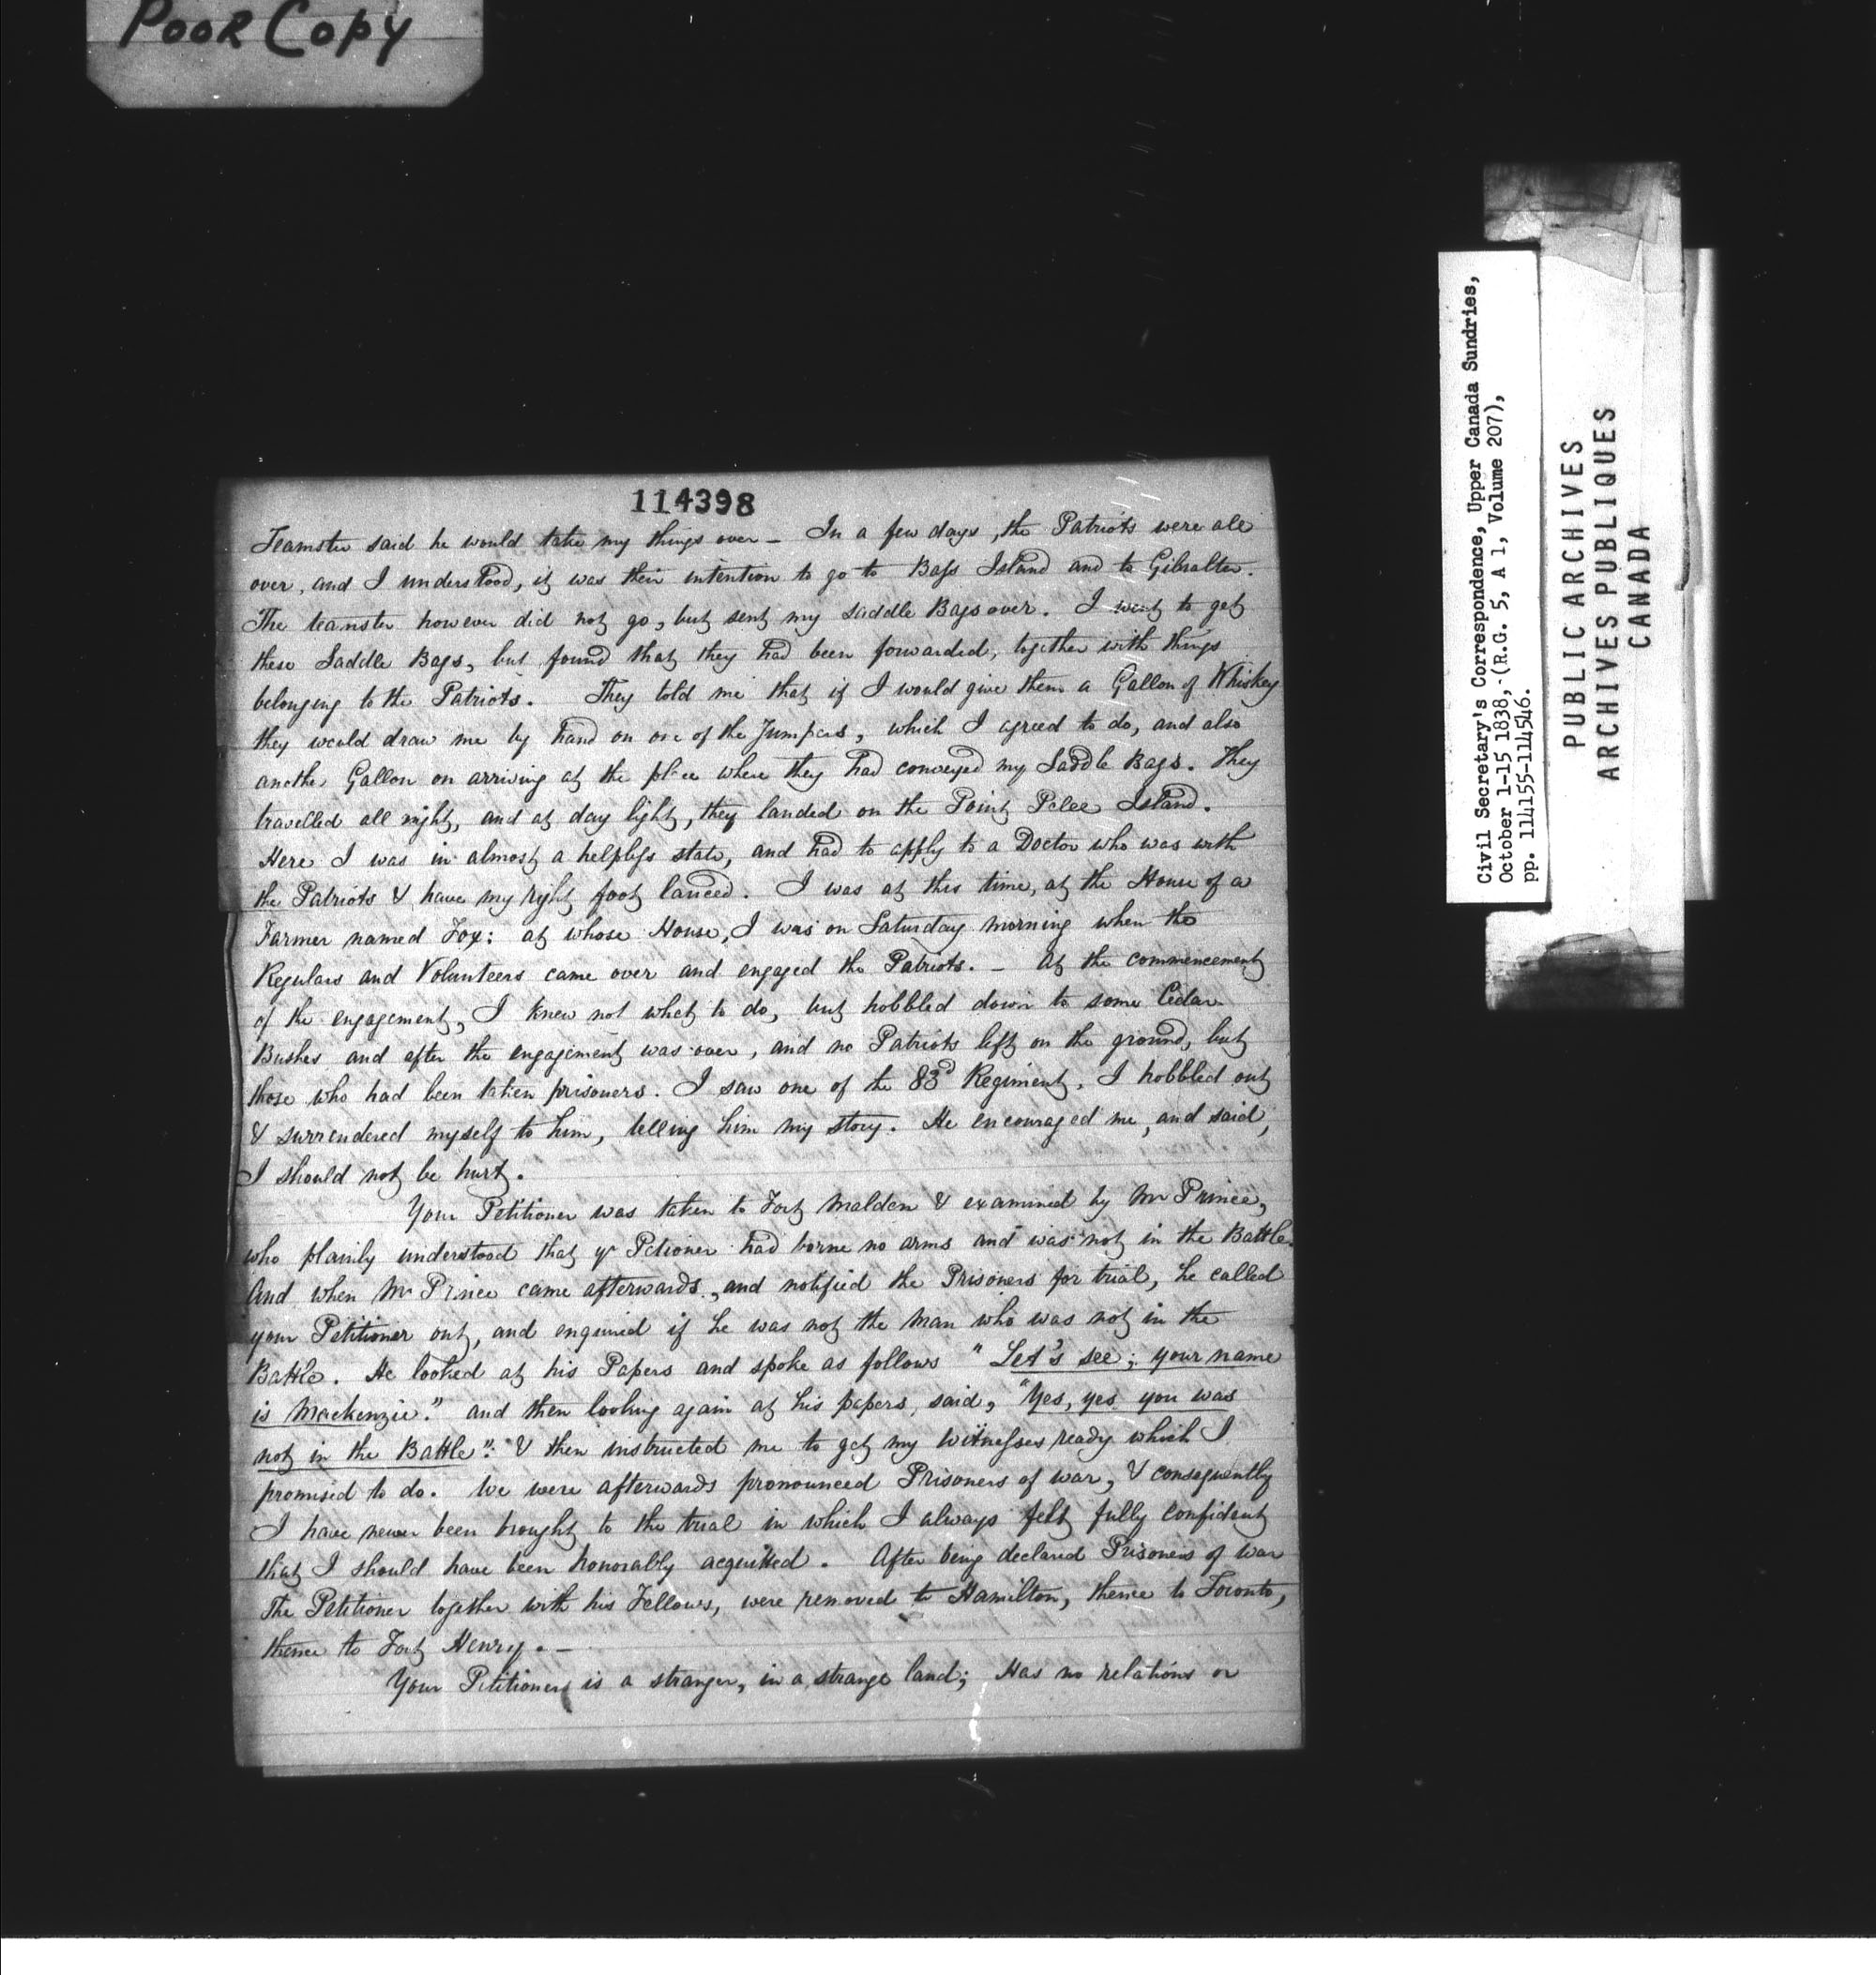 Poor Copy
114398
Teamster said he would take my things over — In a few days, the Patriots were all
over, and I understood, it was their intention to go to Bass Island and to Gibralter.
The teamster however did not go, but sent my Saddle Bags over. I went to get
these Saddle Bags, but found that they had been forwarded, together with things
belonging to the Patriots. They told me that if I would give them a Gallon of Whiskey
they would draw me by hand on one of the Jumpers, which I agreed to do, and also
another Gallon on arriving at the place where they had conveyed my Saddle Bags. They
travelled all night, and at day light, they landed on the Point Pelee Island.
Here I was in almost a helpless state, and had to apply to a Doctor who was with
the Patriots & have my right foot lanced. I was at this time, at the House of a
Farmer named Fox: at whose House, I was on Saturday morning when the
Regulars and Volunteers came over and engaged the Patriots. — At the commencement
of the engagement, I knew not what to do, but hobbled down to some Cedar
Bushes and after the engagement was over, and no Patriots left on the ground, but
those who had been taken prisoners. I saw one of the 83d Regiment. I hobbled out
& surrendered myself to him, telling him my story. He encouraged me, and said,
I should not be hurt.
Your Petitioner was taken to Fort Malden & examined by Mr Prince,
who plainly understood that yr Petioner had borne no arms and was not in the Battle.
And when Mr Prince came afterwards, and notified the Prisoners for trial, he called
your Petitioner out, and enquired if he was not the man who was not in the
Battle. He looked at his Papers and spoke as follows "Let's see; your name
is Mackenzie." and then looking again at his papers, said, "Yes, yes you was
not in the Battle": & then instructed me to get my witnesses ready which I
promised to do. We were afterwards pronounced Prisoners of war, & consequently
I have never been brought to the trial in which I always felt fully confident
that I should have been honorably acquitted. After being declared Prisoners of war
The Petitioner together with his Fellows, were removed to Hamilton, thence to Toronto,
thence to Fort Henry. —
Your Petitioner is a stranger, in a strange land; Has no relations or
Civil Secretary's Correspondence, Upper Canada Sundries,
October 1-15 1838, (R.G. 5, A 1, Volume 207),
pp. 114155-114546.
PUBLIC ARCHIVES
ARCHIVES PUBLIQUES
CANADA